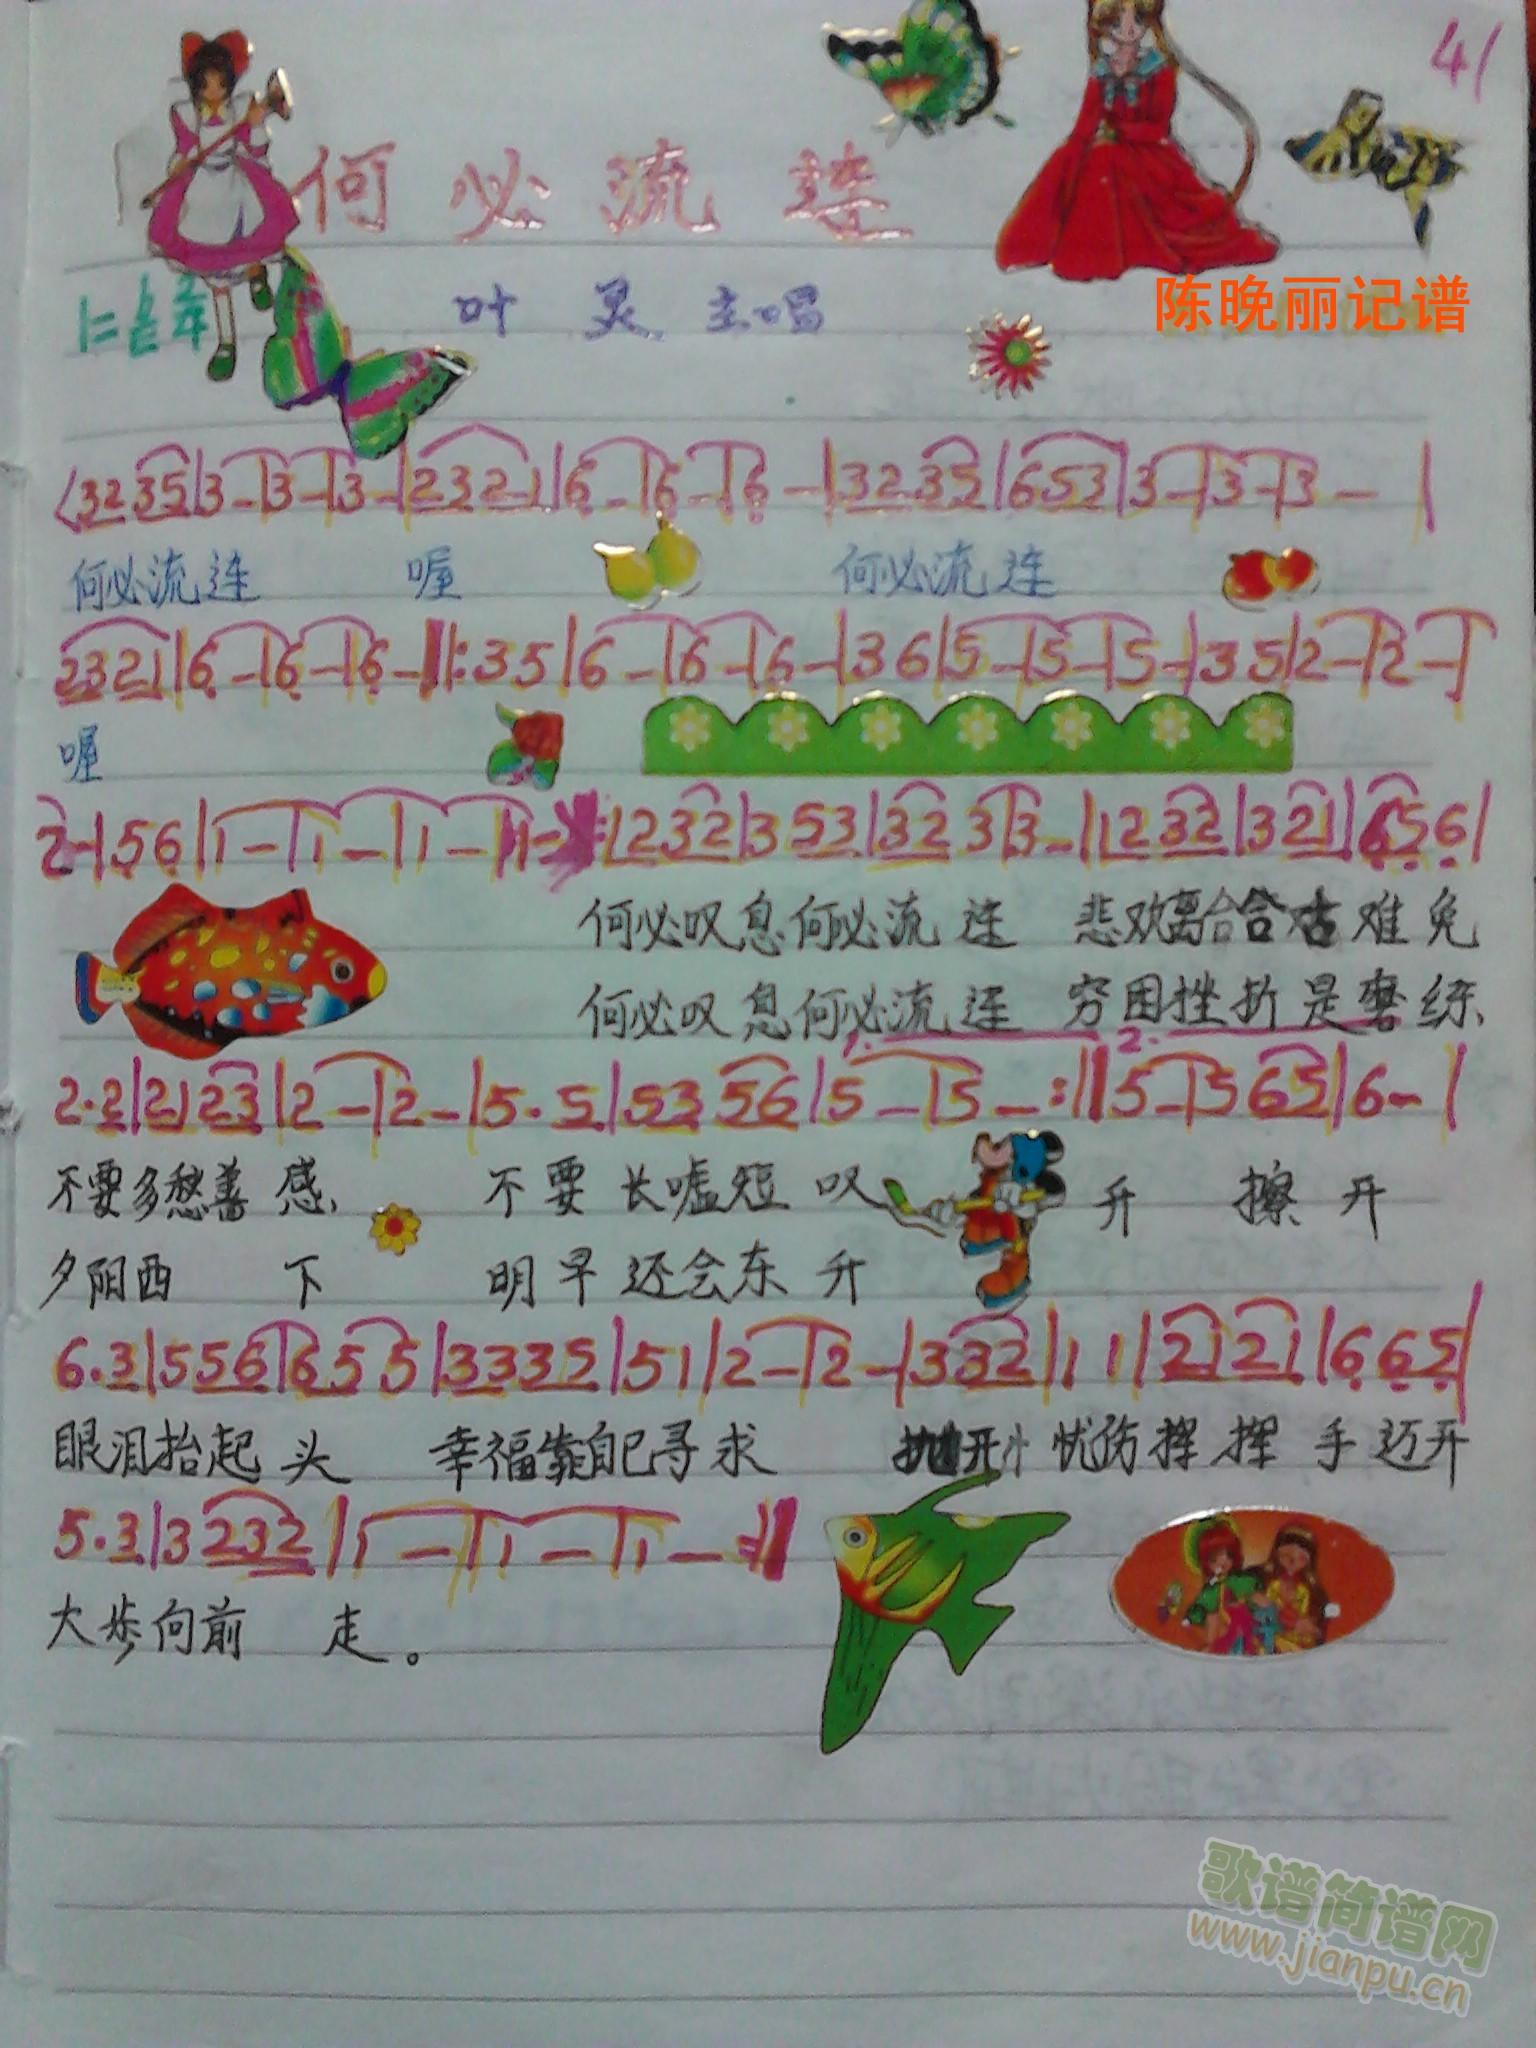 41
何必流连
叶灵主唱
陈晚丽记谱
3235|3-|3-|3-|2321|6-|6-|6-|3235|653|3-|3-|3-|
何必流连 喔 何必流连
2321|6-|6-|6-‖:35|6-|6-|6-|36|5-|5-|5-|35|2-|2-|
喔
2-|56|1-|1-|1-|1-:|1232|353|323|3-|1232|321|656|
何必叹息何必流连 悲欢离合古难免
何必叹息何必流连 穷困挫折是磨练
1. 2.
2.2|2123|2-|2-|5.5|5356|5-|5-:‖5-|565|6-|
不要多愁善感 不要长嘘短叹 升 擦开
夕阳西 下 明早还会东升
6.3|556|655|3335|51|2-|2-|332|11|2121|665|
眼泪抬起头 幸福靠自己寻求 抛开忧伤挥挥手迈开
5.3|3232|1-|1-|1-:‖
大步向前 走。
歌谱简谱网
www.jianpu.cn